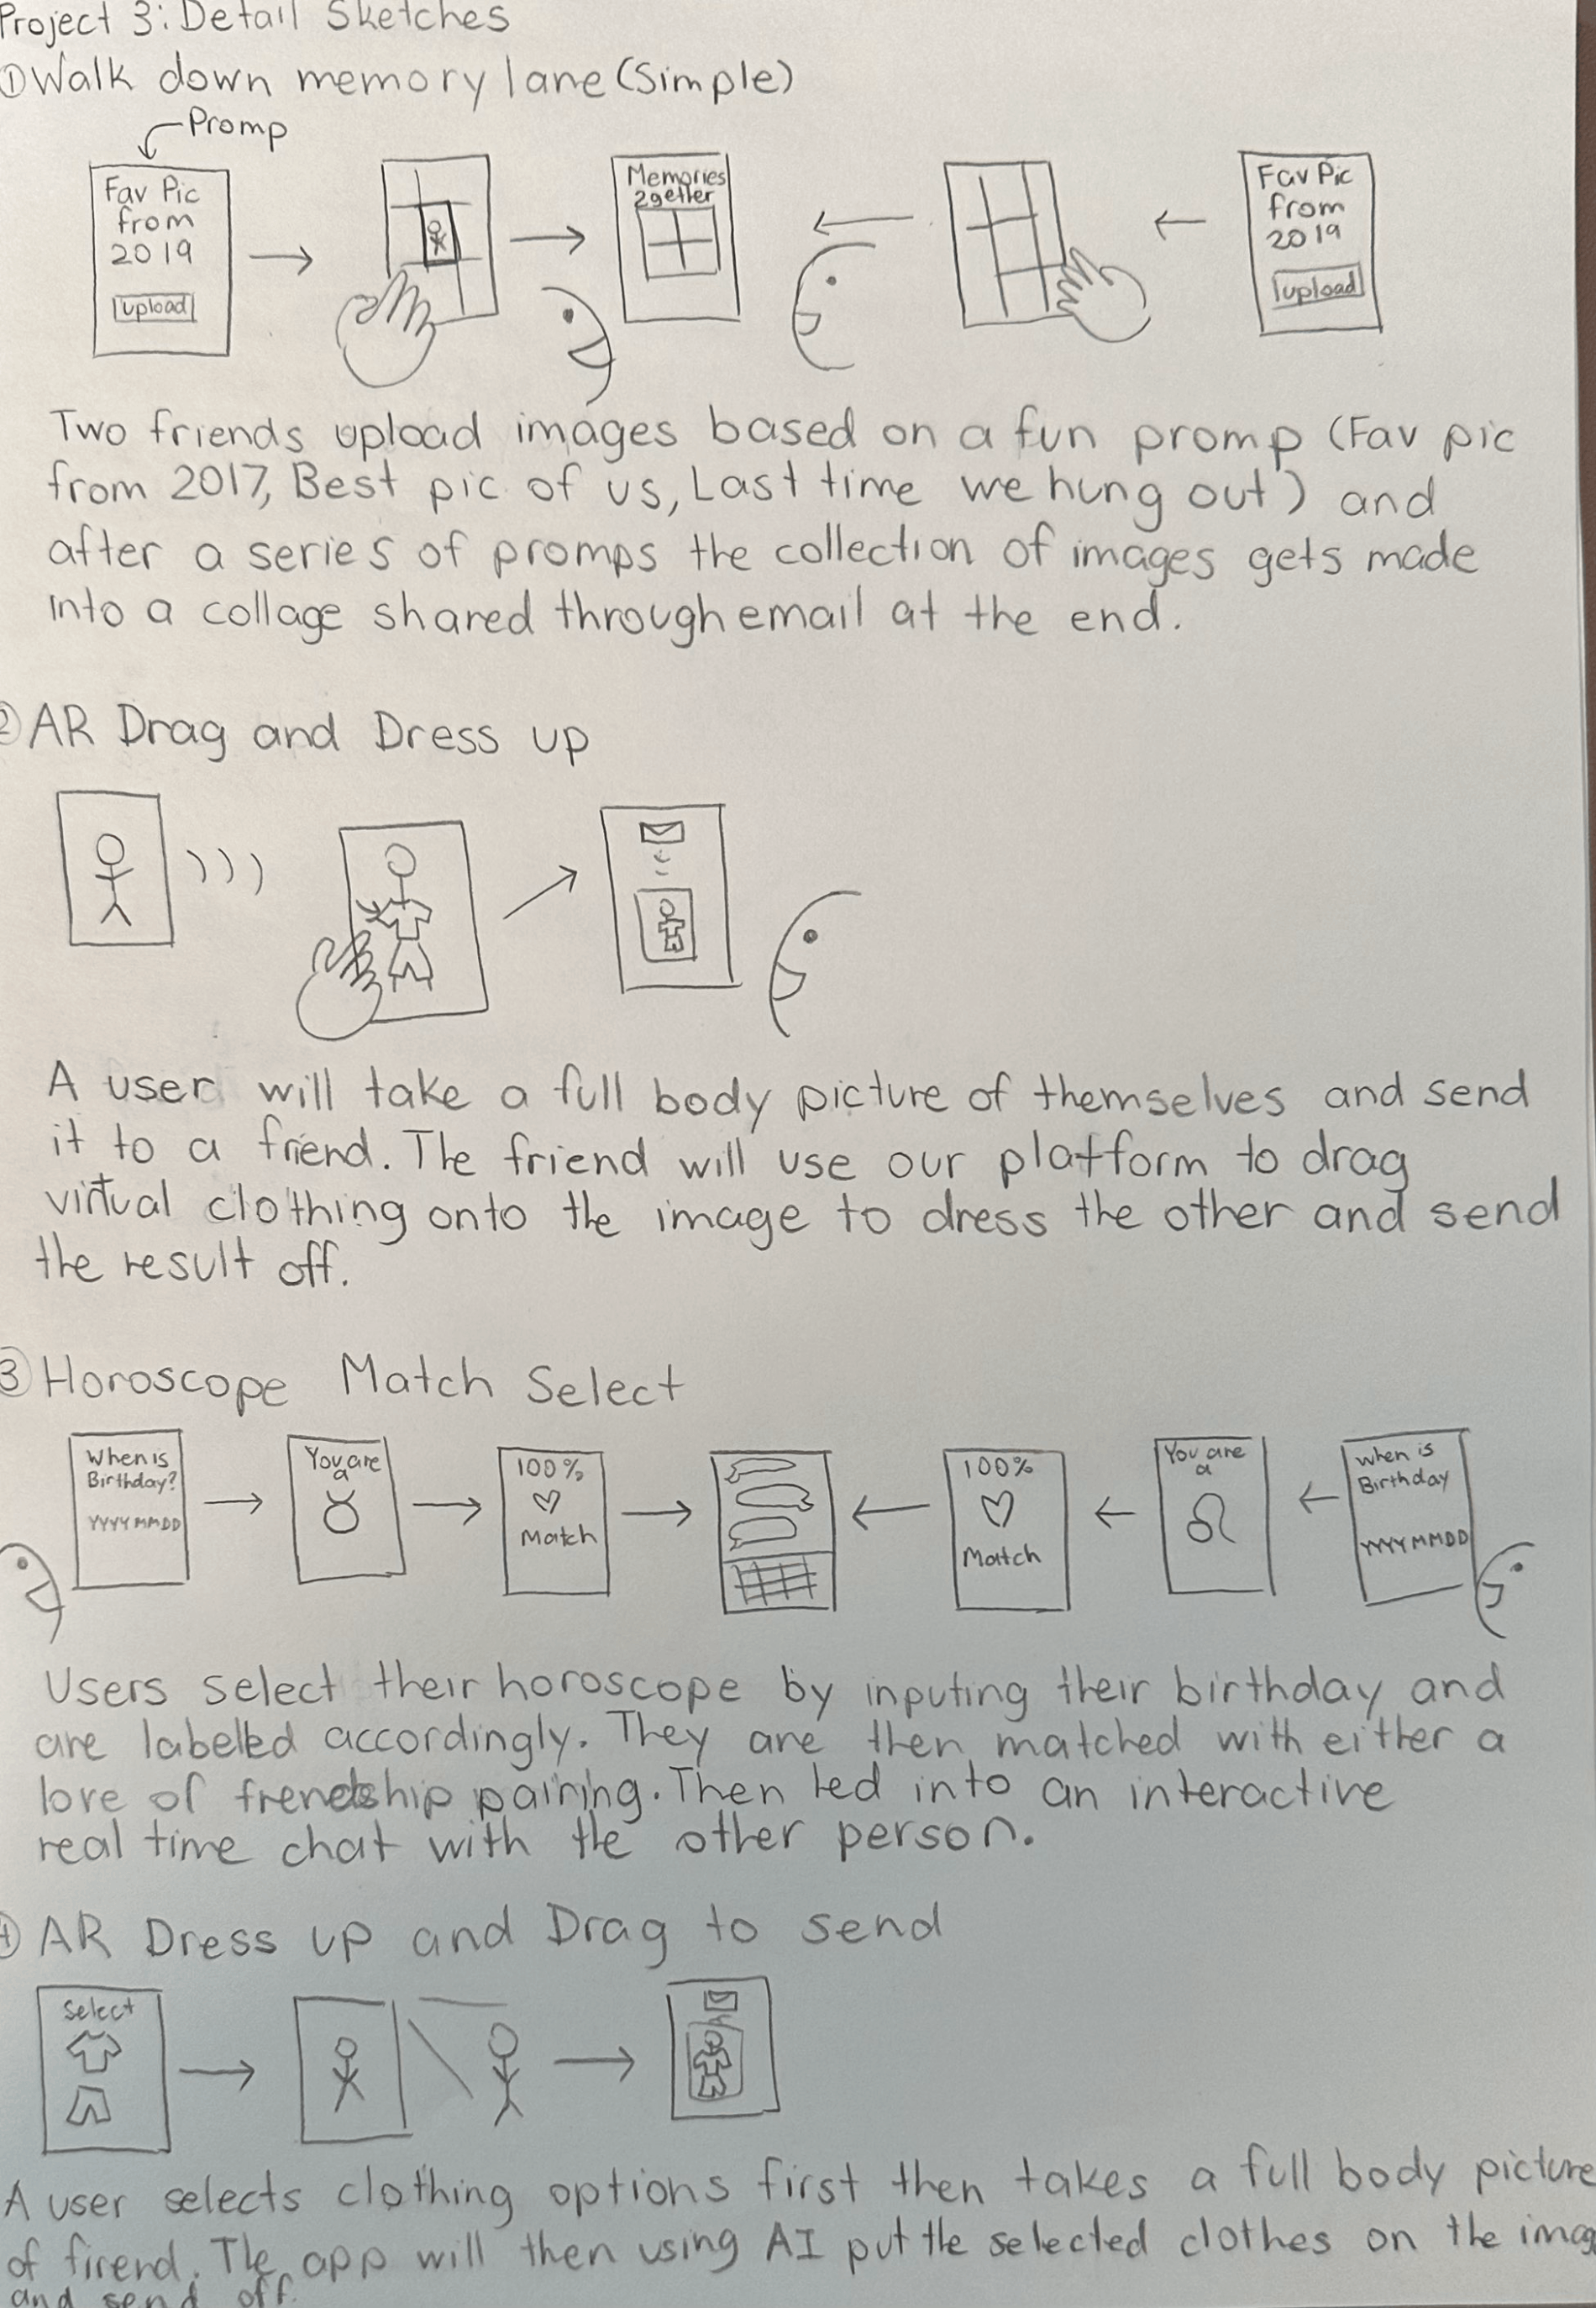 Project 3: Detail Sketches
①Walk down memory lane (Simple)
Promp
Fav Pic
from
2019
upload
Memories
2gether
Fav Pic
from
2019
upload
Two friends upload images based on a fun promp (Fav pic
from 2017, Best pic of us, Last time we hung out) and
after a series of promps the collection of images gets made
into a collage shared through email at the end.
② AR Drag and Dress up
A user will take a full body picture of themselves and send
it to a friend. The friend will use our platform to drag
virtual clothing onto the image to dress the other and send
the result off.
③ Horoscope Match Select
When is
Birthday?
YYYY MMDD
You are
a
♉
100%
♡
Match
100%
♡
Match
You are
a
♌
when is
Birthday
YYYY MMDD
Users select their horoscope by inputing their birthday and
are labelled accordingly. They are then matched with either a
love of frendship pairing. Then led into an interactive
real time chat with the other person.
④ AR Dress up and Drag to send
Select
A user selects clothing options first then takes a full body picture
of firend. The app will then using AI put the selected clothes on the imag
and send off.